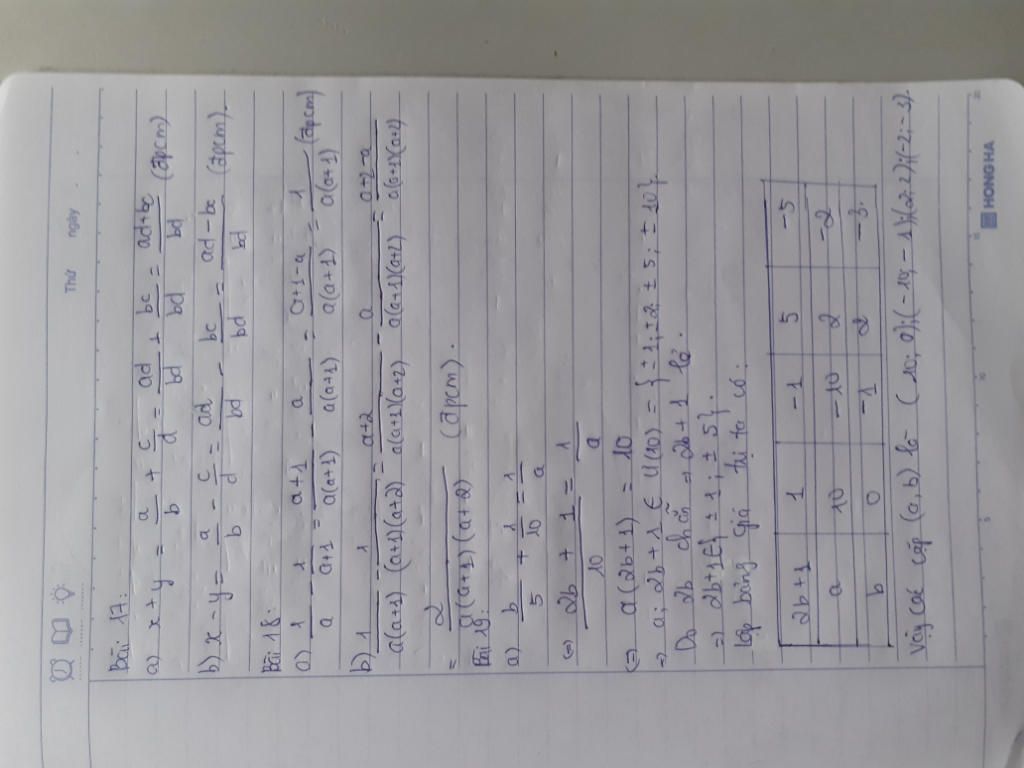 Thứ ngày
Bài 17:
a) x + y = a/b + c/d = ad/bd + bc/bd = ad+bc/bd (đpcm)
b) x - y = a/b - c/d = ad/bd - bc/bd = ad-bc/bd (đpcm).
Bài 18:
a) 1/a - 1/a+1 = a+1/a(a+1) - a/a(a+1) = a+1-a/a(a+1) = 1/a(a+1) (đpcm)
b) 1/a(a+1) - 1/(a+1)(a+2) = a+2/a(a+1)(a+2) - a/a(a+1)(a+2) = a+2-a/a(a+1)(a+2)
= 2/a(a+1)(a+2) (đpcm).
Bài 19:
a) b/5 + 1/10 = 1/a
(=) 2b+1/10 = 1/a
(=) a(2b+1) = 10
=> a; 2b+1 ∈ Ư(10) = {±1; ±2; ±5; ±10}.
Do 2b chẵn => 2b+1 lẻ.
=> 2b+1 ∈ {±1; ±5}.
Lập bảng giá trị ta có:
2b+1 1 -1 5 -5
a 10 -10 2 -2
b 0 -1 2 -3.
Vậy các cặp (a,b) là (10; 0);(-10; -1);(2; 2);(-2; -3).
HONG HA